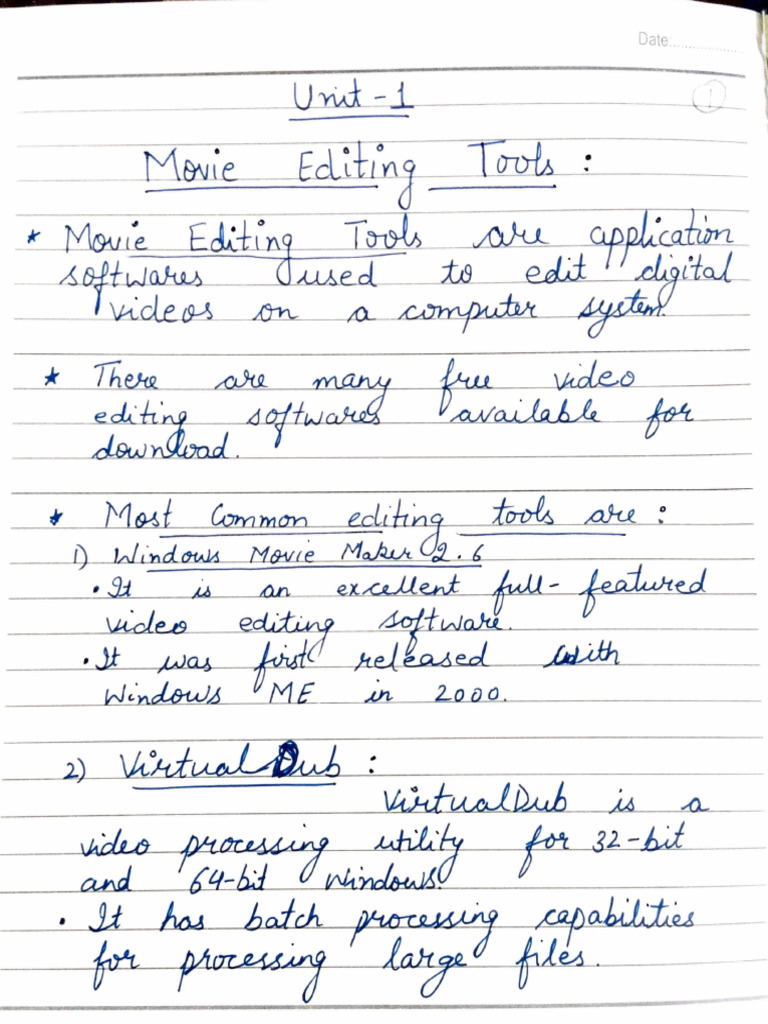 Date:
Unit - 1
1
Movie Editing Tools :
* Movie Editing Tools are application
softwares used to edit digital
videos on a computer system.
* There are many free video
editing softwares available for
download.
* Most Common editing tools are :
1) Windows Movie Maker 2.6
• It is an excellent full- featured
video editing software.
• It was first released with
Windows ME in 2000.
2) VirtualDub :
VirtualDub is a
video processing utility for 32-bit
and 64-bit windows.
• It has batch processing capabilities
for processing large files.